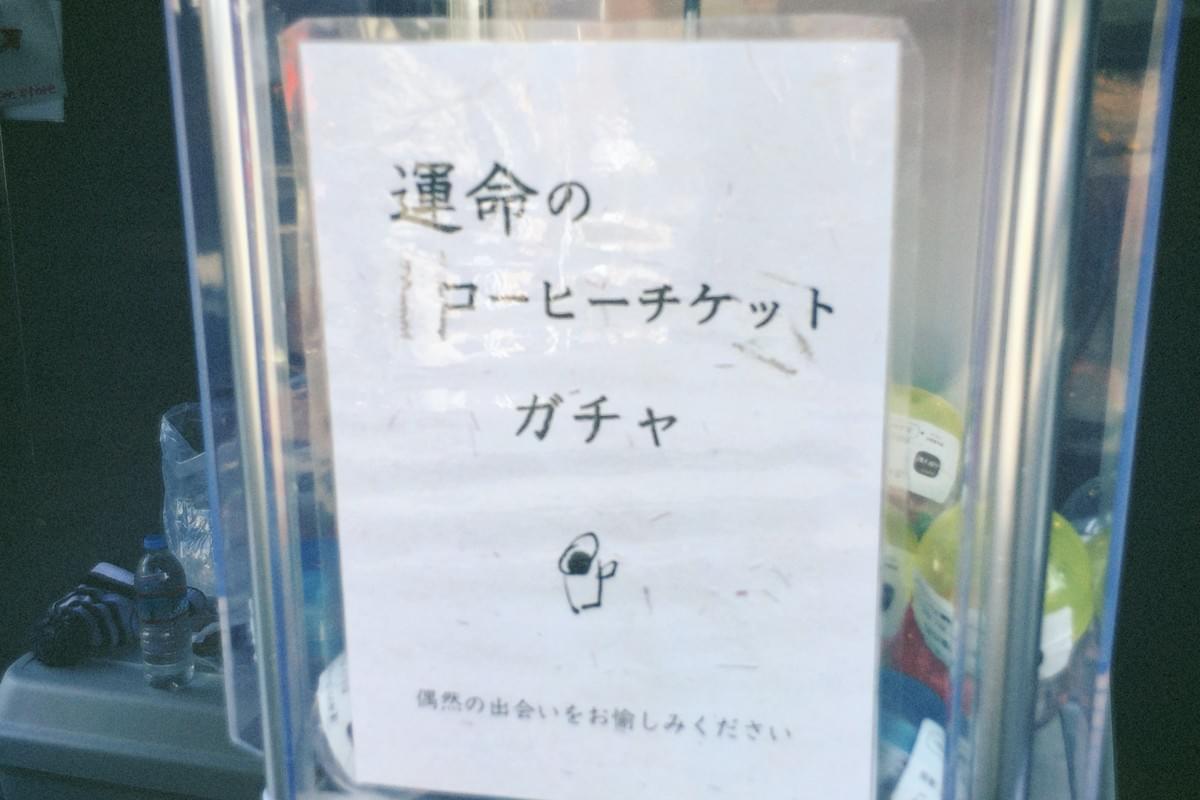 運命の
コーヒーチケット
ガチャ
偶然の出会いをお愉しみください